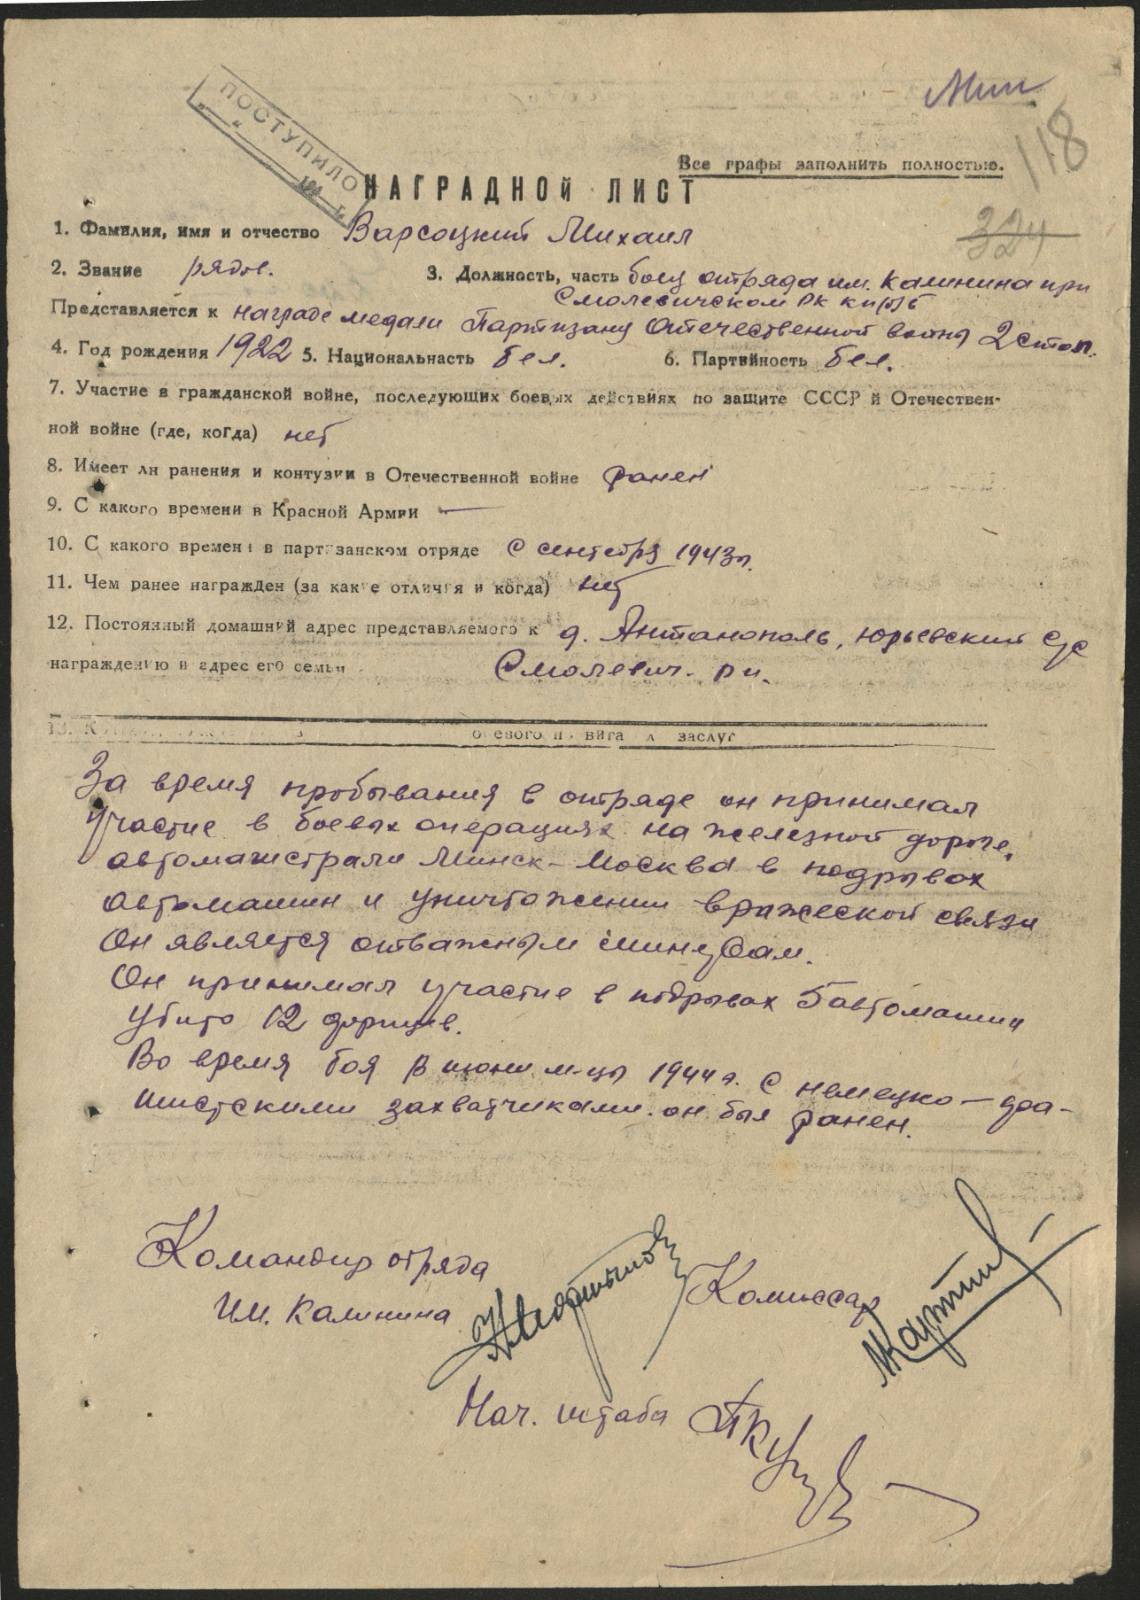 Мин
118
ПОСТУПИЛО
194 г.
Все графы заполнить полностью.
НАГРАДНОЙ ЛИСТ
324
1. Фамилия, имя и отчество Варсоцкий Михаил
2. Звание рядов. 3. Должность, часть боец отряда им. Калинина при
Смолевичском РК КП(б)Б
Представляется к награде медали Партизану Отечественной войны 2 степ.
4. Год рождения 1922 5. Национальнасть бел. 6. Партийность бел.
7. Участие в гражданской войне, последующих боевых действиях по защите СССР и Отечествен-
ной войне (где, когда) нет
8. Имеет ли ранения и контузии в Отечественной войне ранен
9. С какого времени в Красной Армии —
10. С какого времени в партизанском отряде с сентября 1943г.
11. Чем ранее награжден (за какие отличия и когда) нет
12. Постоянный домашний адрес представляемого к д. Антанополь, Юрьевский с/с
награждению и адрес его семьи Смолевич. р-н.
13. боевого подвига заслуг
За время пробывания в отряде он принимал
участие в боевых операциях на железной дороге,
автомагистрали Минск-Москва в подрывах
автомашин и уничтожении вражеской связи
Он является отважным
Он принимал участие в подрывах 5 автомашин
Убито 12 фрицев.
Во время боя в июни м-цы 1944г. с немецко-фа-
шистскими захватчиками он был ранен.
Командир отряда
им. Калинина
Комиссар
Нач. штаба